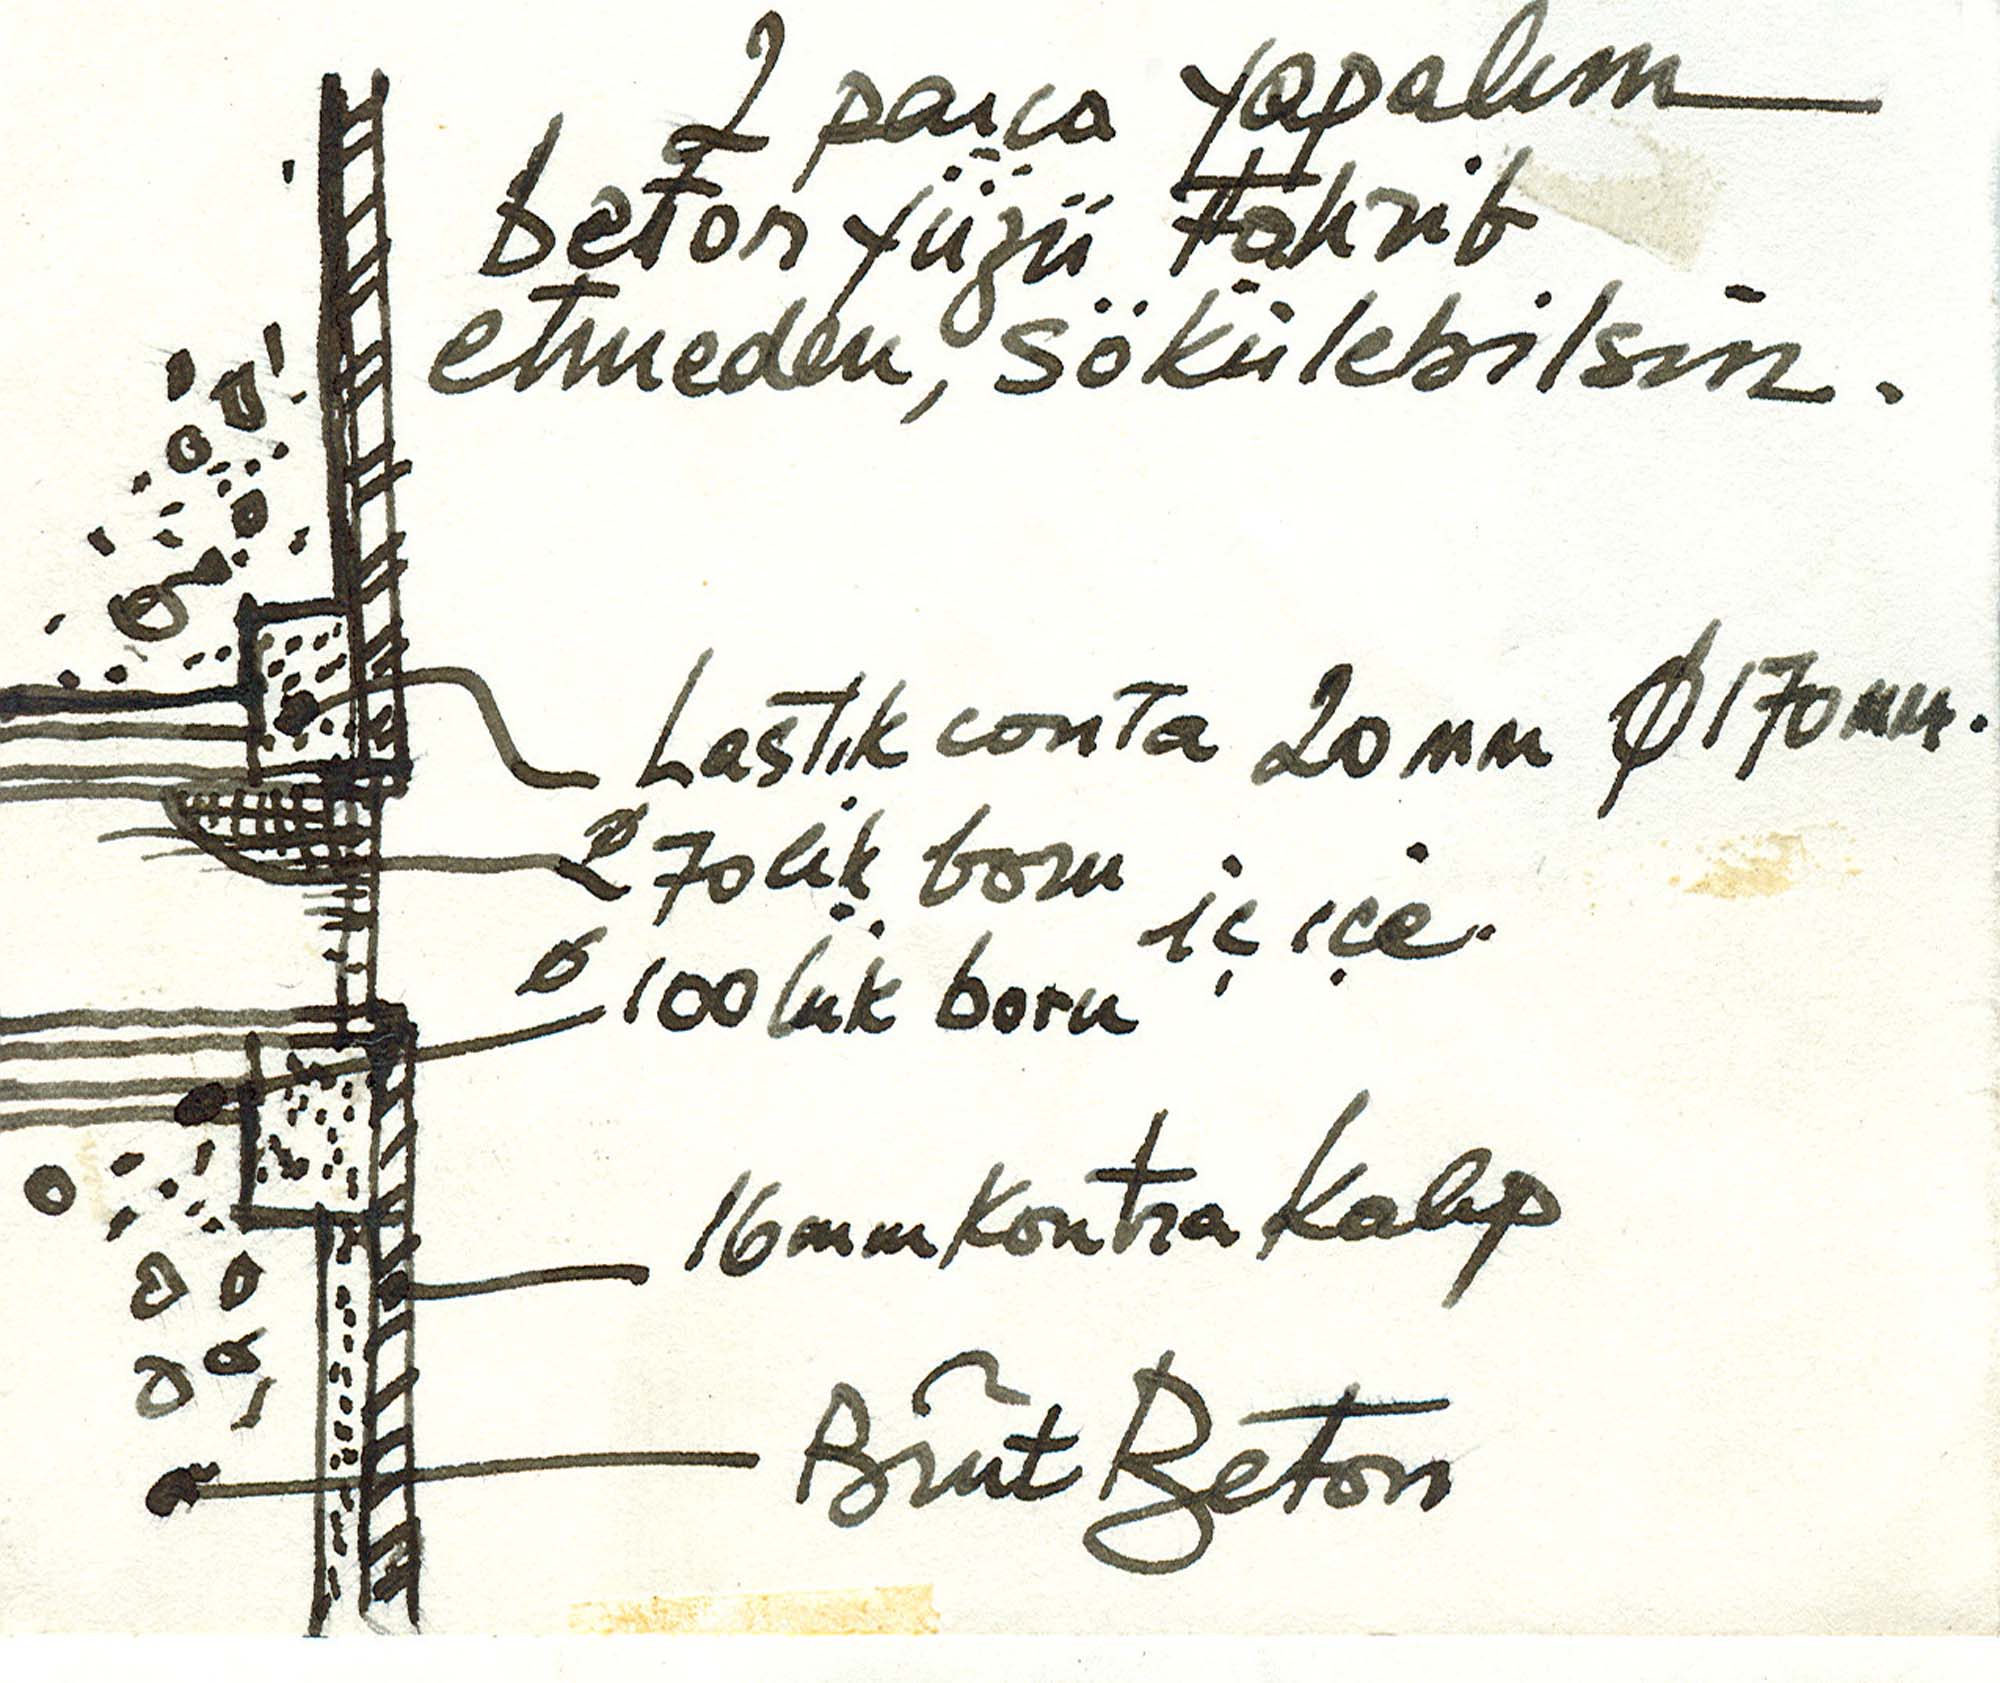 2 parça yapalım
beton yüzü tahrib
etmeden, sökülebilsin.
Lastik conta 20 mm Ø170mm.
Ø 70lik boru
iç içe.
Ø 100lük boru
16mm kontra kalıp
Brüt Beton